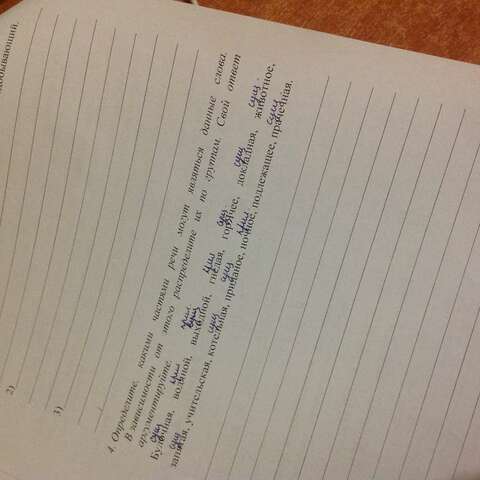 добывающий.
2)
3)
4. Определите, какими частями речи могут являться данные слова.
В зависимости от этого распределите их по группам. Свой ответ
аргументируйте.
сущ прил прил. сущ прил сущ. сущ сущ.
Булочная, водяной, выходной, гнедая, горячее, докладная, животное,
сущ сущ сущ прил сущ
запятая, учительская, котельная, приданое, ночное, подлежащее, прачечная.